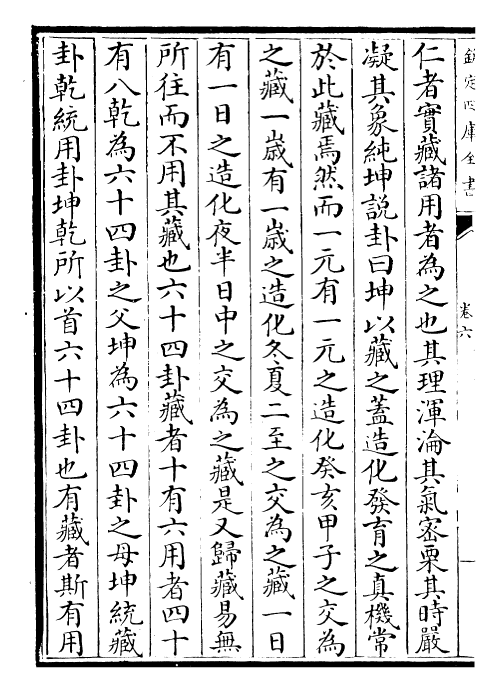 欽定四庫全書
卷六
仁者實藏諸用者為之也其理渾淪其氣宻栗其時嚴
凝其象純坤説卦曰坤以藏之蓋造化發育之真機常
於此藏焉然而一元有一元之造化癸亥甲子之交為
之藏一嵗有一嵗之造化冬夏二至之交為之藏一日
有一日之造化夜半日中之交為之藏是又歸藏易無
所往而不用其藏也六十四卦藏者十有六用者四十
有八乾為六十四卦之父坤為六十四卦之母坤統藏
卦乾統用卦坤乾所以首六十四卦也有藏者斯有用